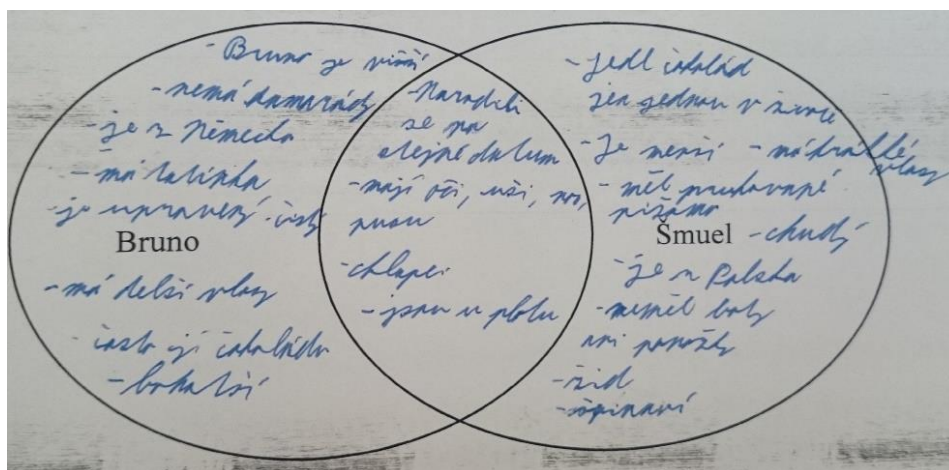 - Bruno je višší
- nemá kamarády
- je z Německa
- má tatínka
- je upravený čistý
Bruno
- má delší vlasy
- často jí čokoládu
- bohatší
- Narodili
se na
stejné datum
- mají oči, uši, nos,
pusu
- chlapci
- jsou u plotu
- jedl čokolád
jen jednou v životě
- Je menší - má krátké
vlasy
- měl pruhované
pižamo
Šmuel - chudý
- je z Polska
- neměl boty
ani ponožky
- žid
- špinaví